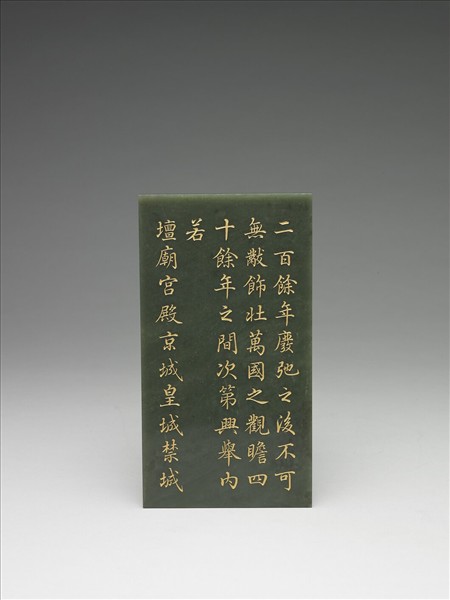 二百餘年廢弛之後不可
無㪚飾壯萬國之觀瞻四
十餘年之間次第興舉内
若
壇廟宫殿京城皇城禁城